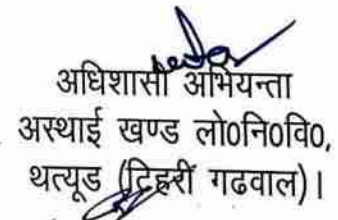 अधिशासी अभियन्ता
अस्थाई खण्ड लो0नि0वि0,
थत्यूड (टिहरी गढवाल)।